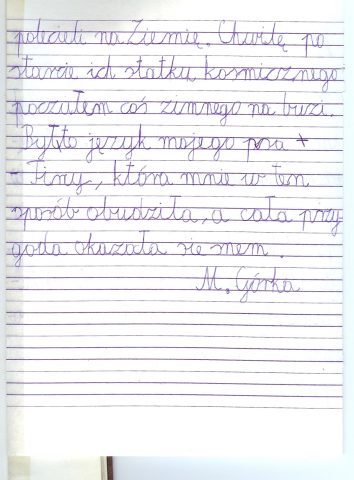 polecieli na Ziemię. Chwilę po
starcie ich statku kosmicznego
poczułem coś zimnego na buzi.
Był to język mojego psa +
- Finy, która mnie w ten
sposób obudziła, a cała przy-
goda okazała się snem.
M. Górka